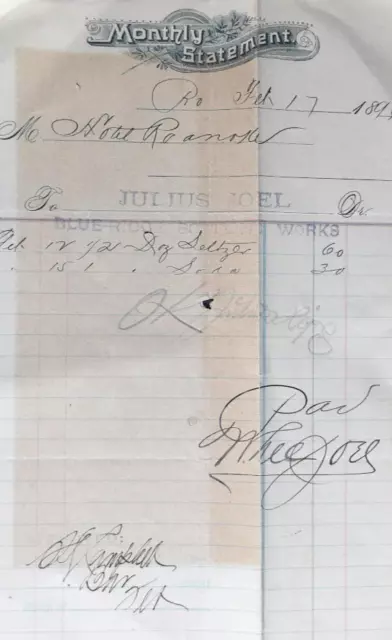 Monthly Statement.
Ro Feb 17 189
M Hotel Roanoke
To JULIUS JOEL Dr.
BLUE RIDGE BOTTLING WORKS
Feb 12 1/2 Doz Seltzer 60
" 15 1 " Soda 30
OK
Paid
Joel
Campbell